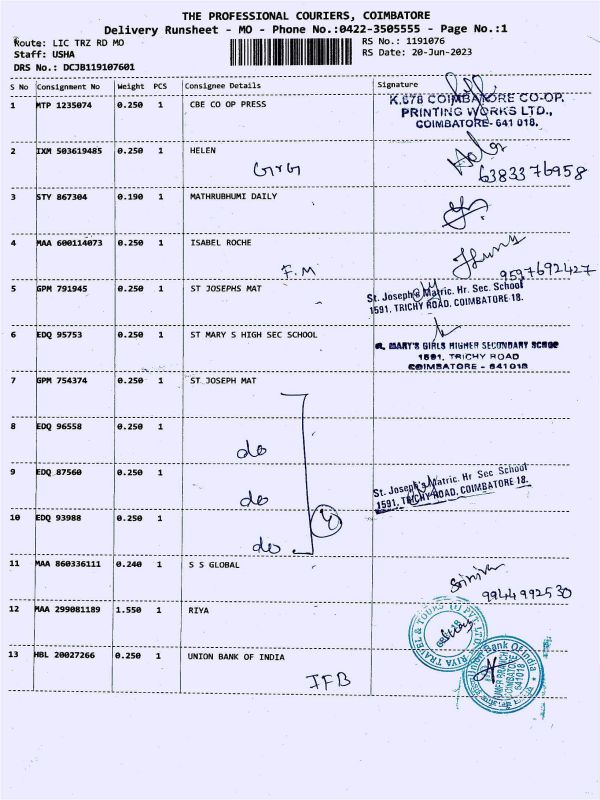 THE PROFESSIONAL COURIERS, COIMBATORE
Delivery Runsheet - MO - Phone No.:0422-3505555 - Page No.:1
Route: LIC TRZ RD MO RS No.: 1191076
Staff: USHA RS Date: 20-Jun-2023
DRS No.: DCJB119107601
S No Consignment No Weight PCS Consignee Details Signature
1 MTP 1235074 0.250 1 CBE CO OP PRESS
K.678 COIMBATORE CO-OP.
PRINTING WORKS LTD.,
COIMBATORE-641 018.
2 IXM 503619485 0.250 1 HELEN
6383376958
3 STY 867304 0.190 1 MATHRUBHUMI DAILY
4 MAA 600114073 0.250 1 ISABEL ROCHE
F.M
9597692427
5 GPM 791945 0.250 1 ST JOSEPHS MAT
St. Joseph's Matric. Hr. Sec. School
1591, TRICHY ROAD, COIMBATORE 18.
6 EDQ 95753 0.250 1 ST MARY S HIGH SEC SCHOOL
MARY'S GIRLS HIGHER SECONDARY SCHOOL
1591, TRICHY ROAD
COIMBATORE - 641018
7 GPM 754374 0.250 1 ST JOSEPH MAT
8 EDQ 96558 0.250 1
do
9 EDQ 87560 0.250 1
St. Joseph's Matric. Hr Sec School
1591, TRICHY ROAD, COIMBATORE 18.
do
10 EDQ 93988 0.250 1
do
11 MAA 860336111 0.240 1 S S GLOBAL
9944992530
12 MAA 299081189 1.550 1 RIYA
RIYA TRAVEL & TOURS (I) PVT LTD
13 HBL 20027266 0.250 1 UNION BANK OF INDIA
IFB
Union Bank Of India
COIMBATORE
641018